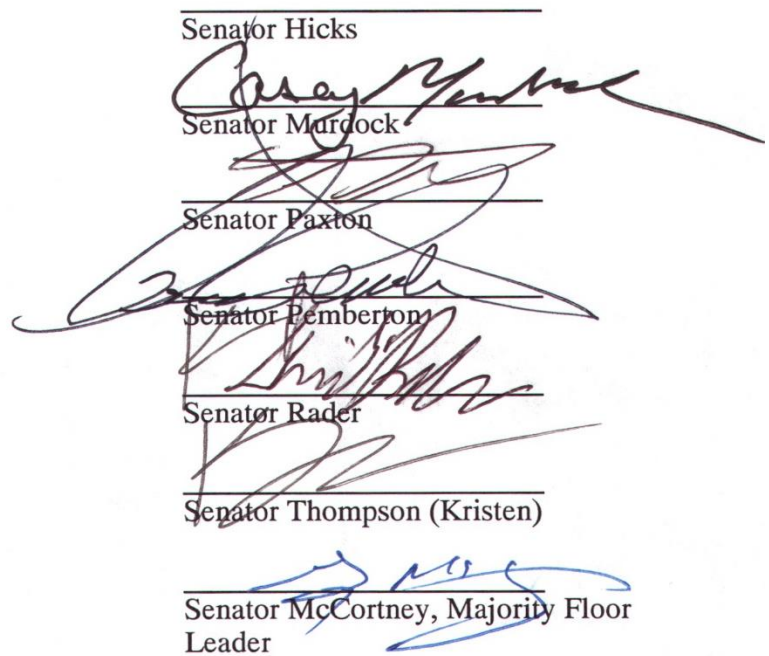 Senator Hicks
Casey Murdock
Senator Murdock
Senator Paxton
Senator Pemberton
Senator Rader
Senator Thompson (Kristen)
Senator McCortney, Majority Floor
Leader